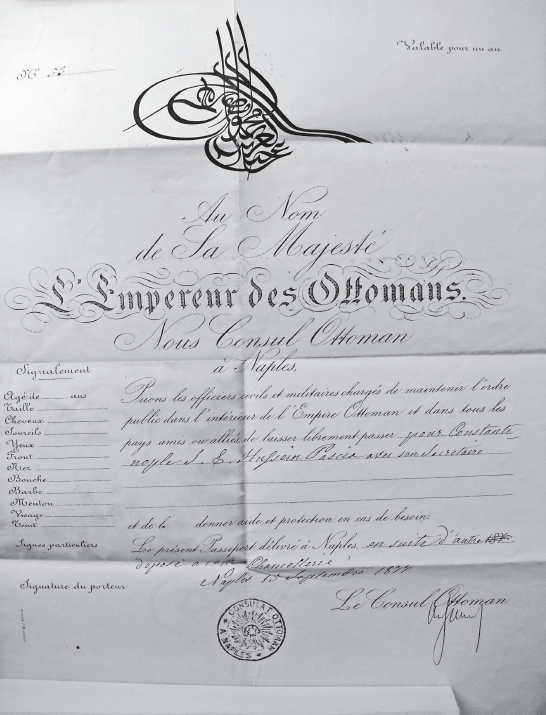 Valable pour un an
Nº 53
Au Nom
de Sa Majesté
L'Empereur des Ottomans.
Nous Consul Ottoman
à Naples,
Signalement
Agé de ans
Taille
Cheveux
Sourcils
Yeux
Front
Nez
Bouche
Barbe
Menton
Visage
Teint
Signes particuliers
Signature du porteur
Prions les officiers civils et militaires chargés de maintenir l'ordre
public dans l'intérieur de l'Empire Ottoman et dans tous les
pays amis ou alliés de laisser librement passer pour Constanti
nople S. E. Hussein Pascia avec son Secretaire
et de la donner aide et protection en cas de besoin.
Le présent Passeport délivré à Naples, en suite d'autre
déposé a cette Chancellerie
Naples 15 Septembre 1877
Le Consul Ottoman
CONSULAT OTTOMAN
A NAPLES